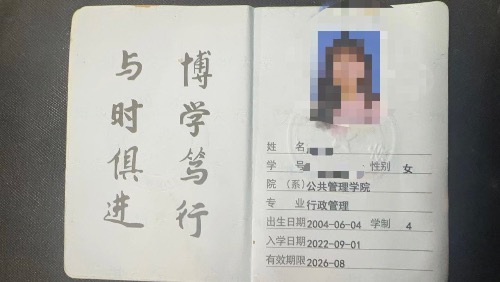 博学笃行
与时俱进
姓 名
学 号 性别 女
院 (系) 公共管理学院
专 业 行政管理
出生日期 2004-06-04 学制 4
入学日期 2022-09-01
有效期限 2026-08